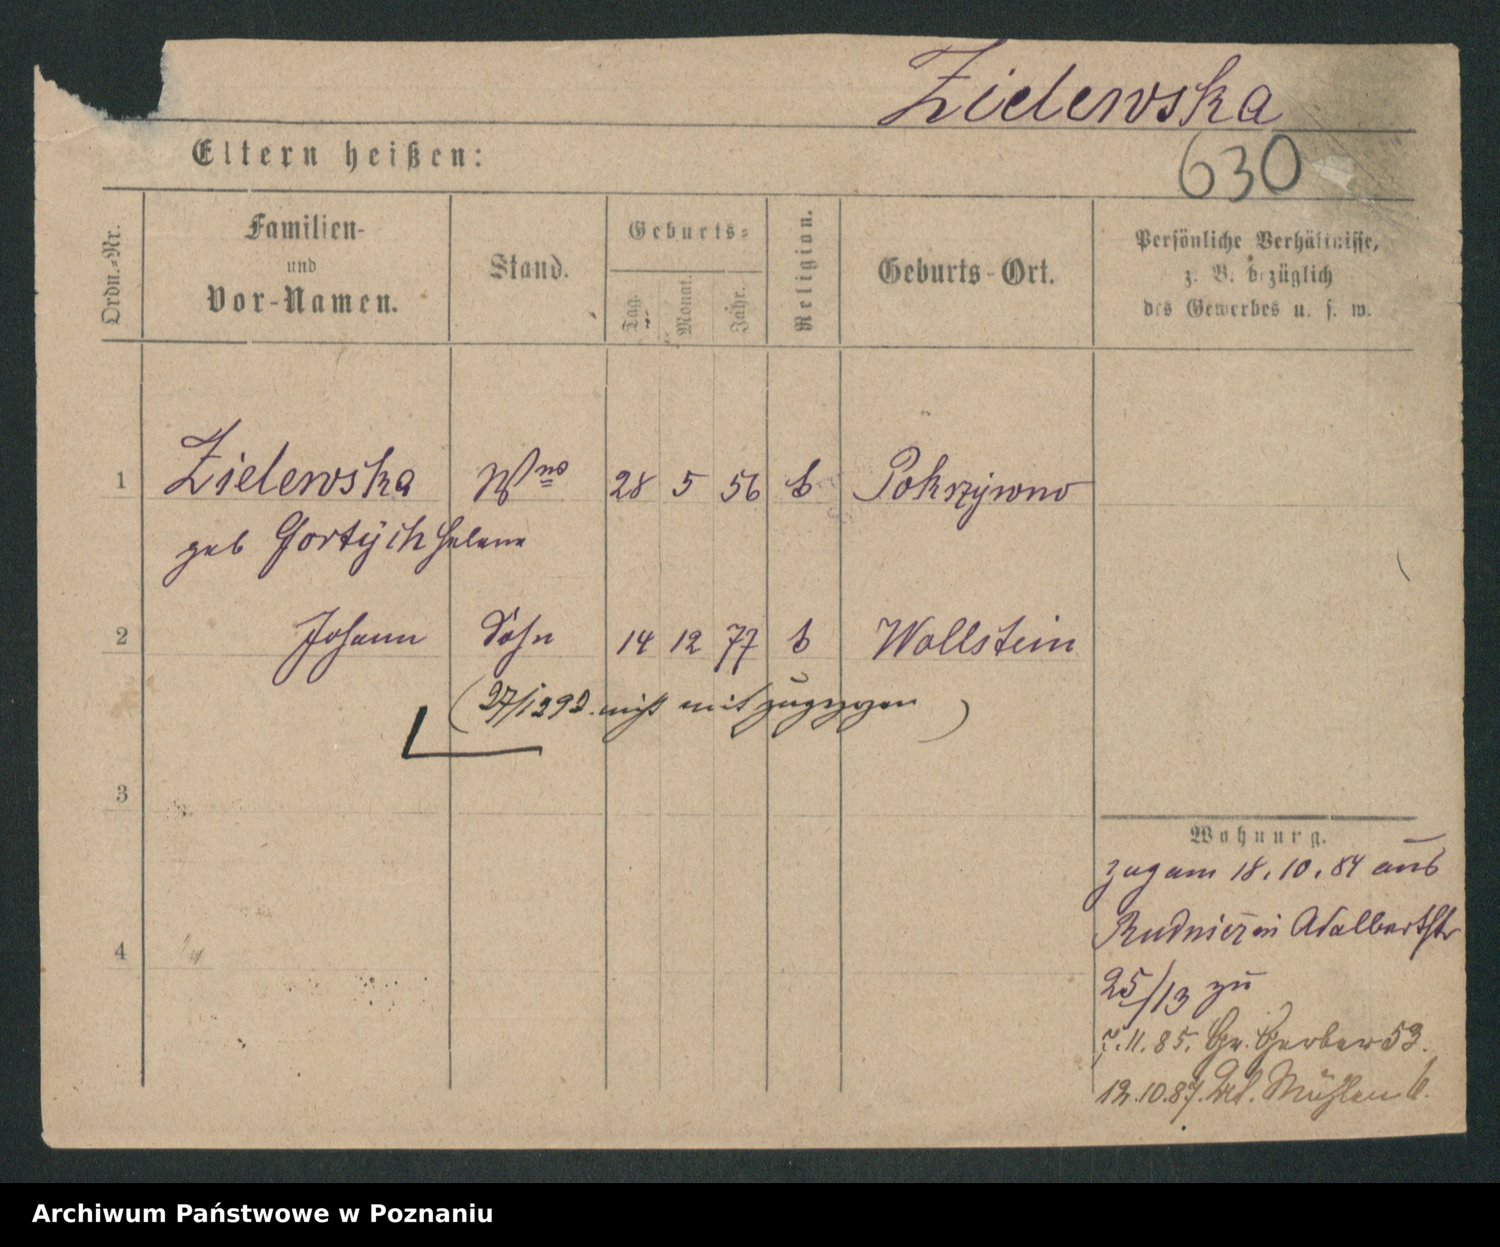 Zielewska
630
Eltern heißen:
Ordn.-Nr.
Familien-
und
Vor-Namen.
Stand.
Geburts-
Tag.
Monat.
Jahr.
Religion.
Geburts-Ort.
Persönliche Verhältnisse,
z. B. bezüglich
des Gewerbes u. s. w.
1 Zielewska Wwe 28 5 56 k Pokrzywno
geb Gortych Helene
2 Johann Sohn 14 12 77 k Wollstein
(27/1292 nicht mit zugezogen)
3
Wohnung.
zug am 18.10.84 aus
Rudnicz in Adalbertstr
4
25/13 zu
7.11.85. Gr. Gerber 53.
12.10.87. Mühlen
Archiwum Państwowe w Poznaniu